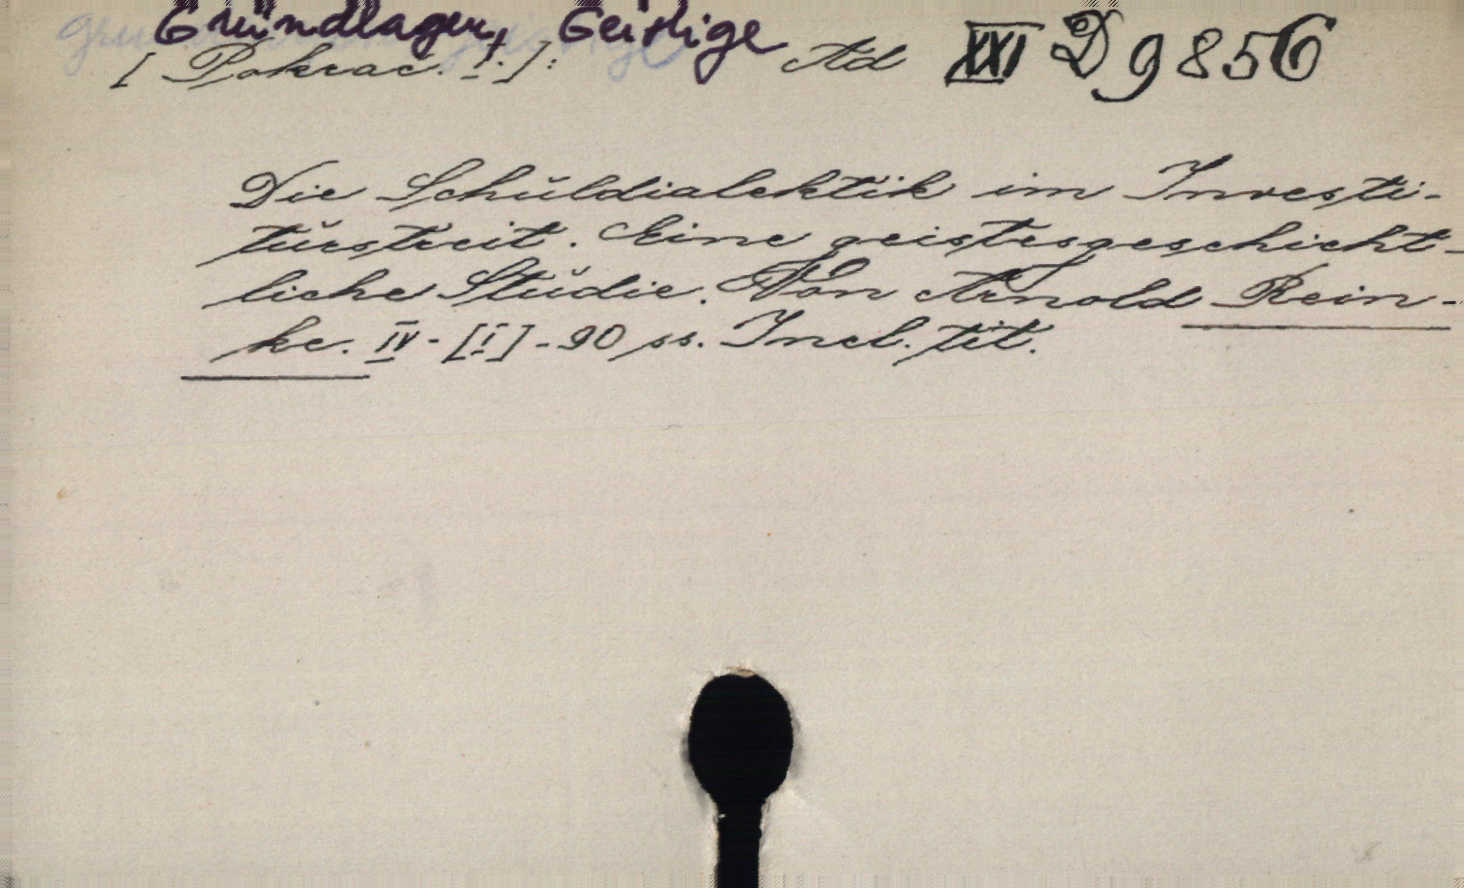 Grundlagen, Geistige
[Pokrac. I.]: Ad XXI D 9856
Die Schŭldialektik im Investi-
tŭrstreit. Eine geistesgeschicht-
liche Stŭdie. Von Arnold Rein-
ke. IV-[I]-90 ss. Incl. tit.